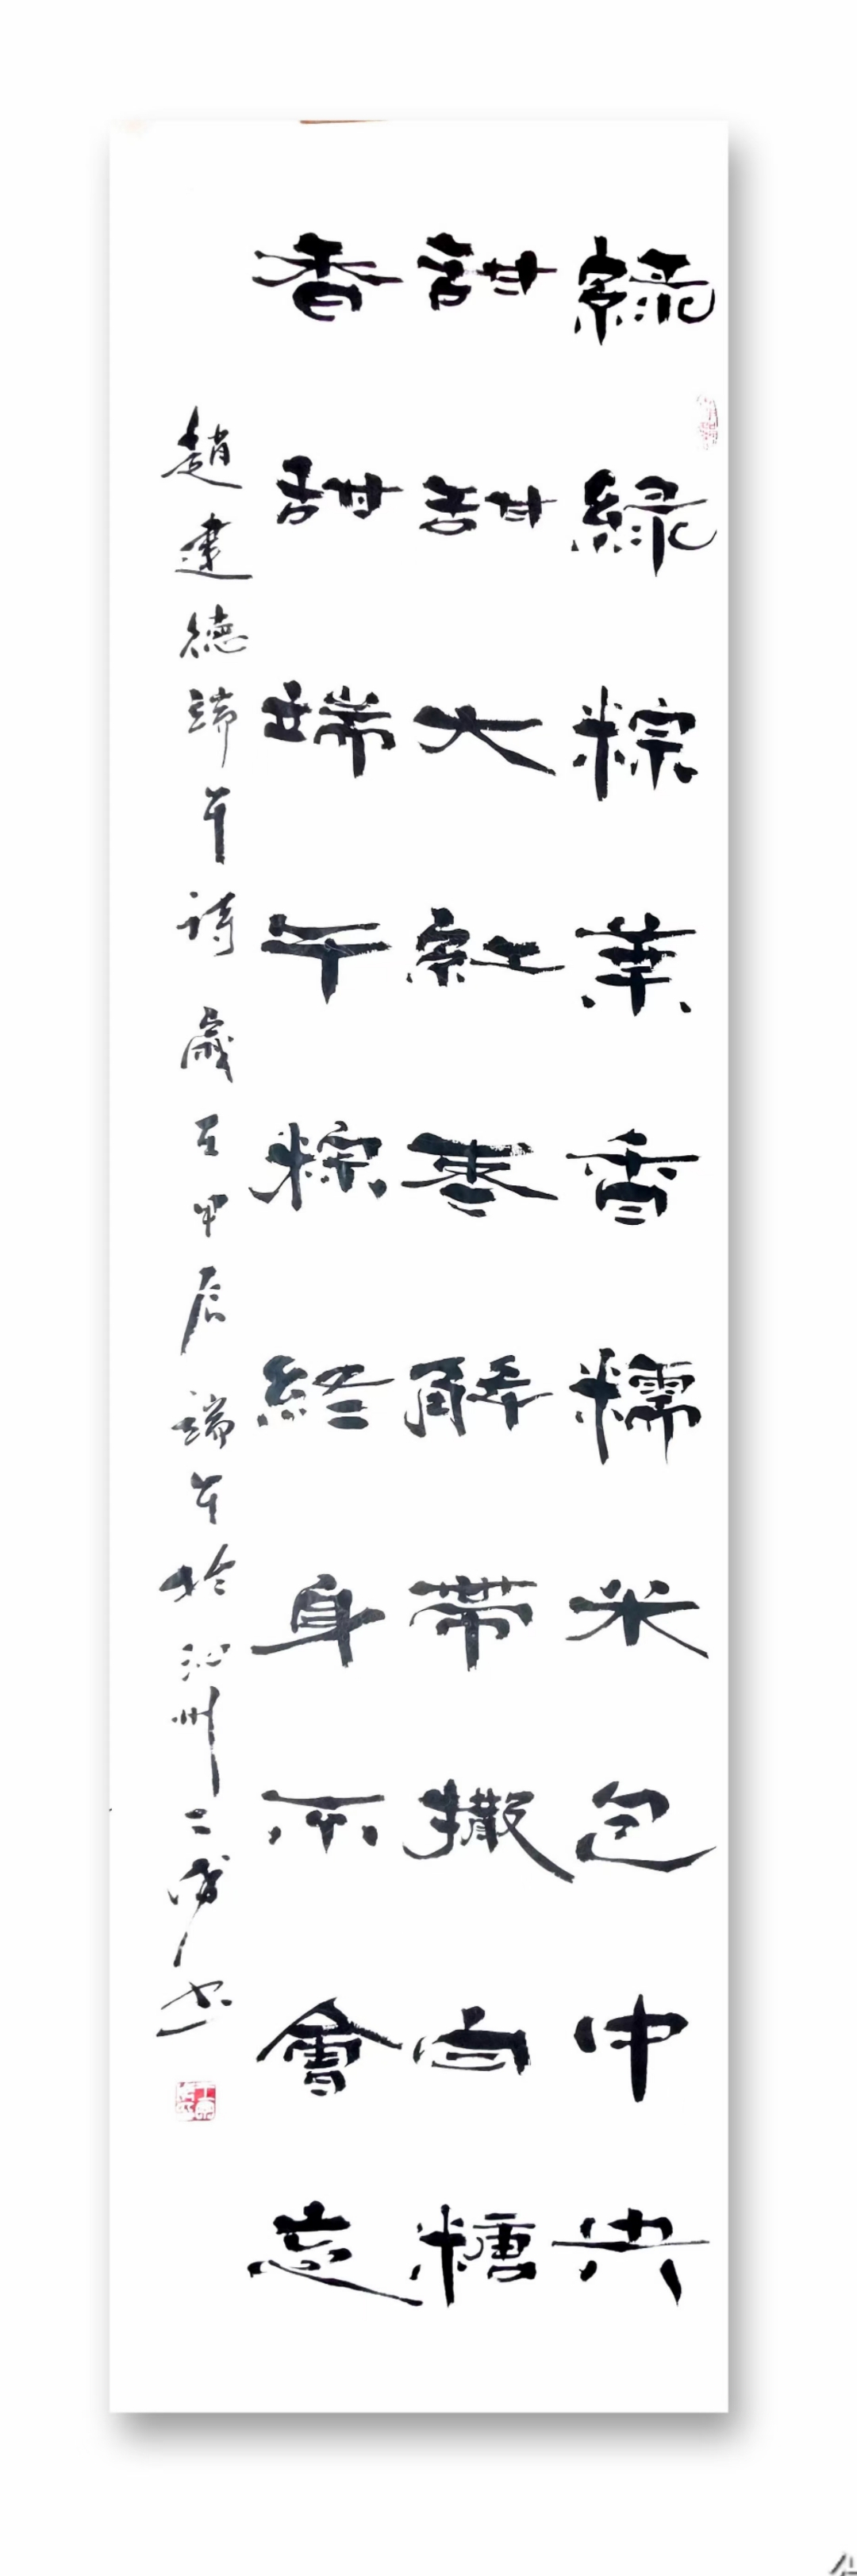 綠綠粽葉香糯米包中央
甜甜大紅棗解帶撒白糖
香甜端午粽終身不會忘
趙建德端午詩 歲在甲辰端午於沁州